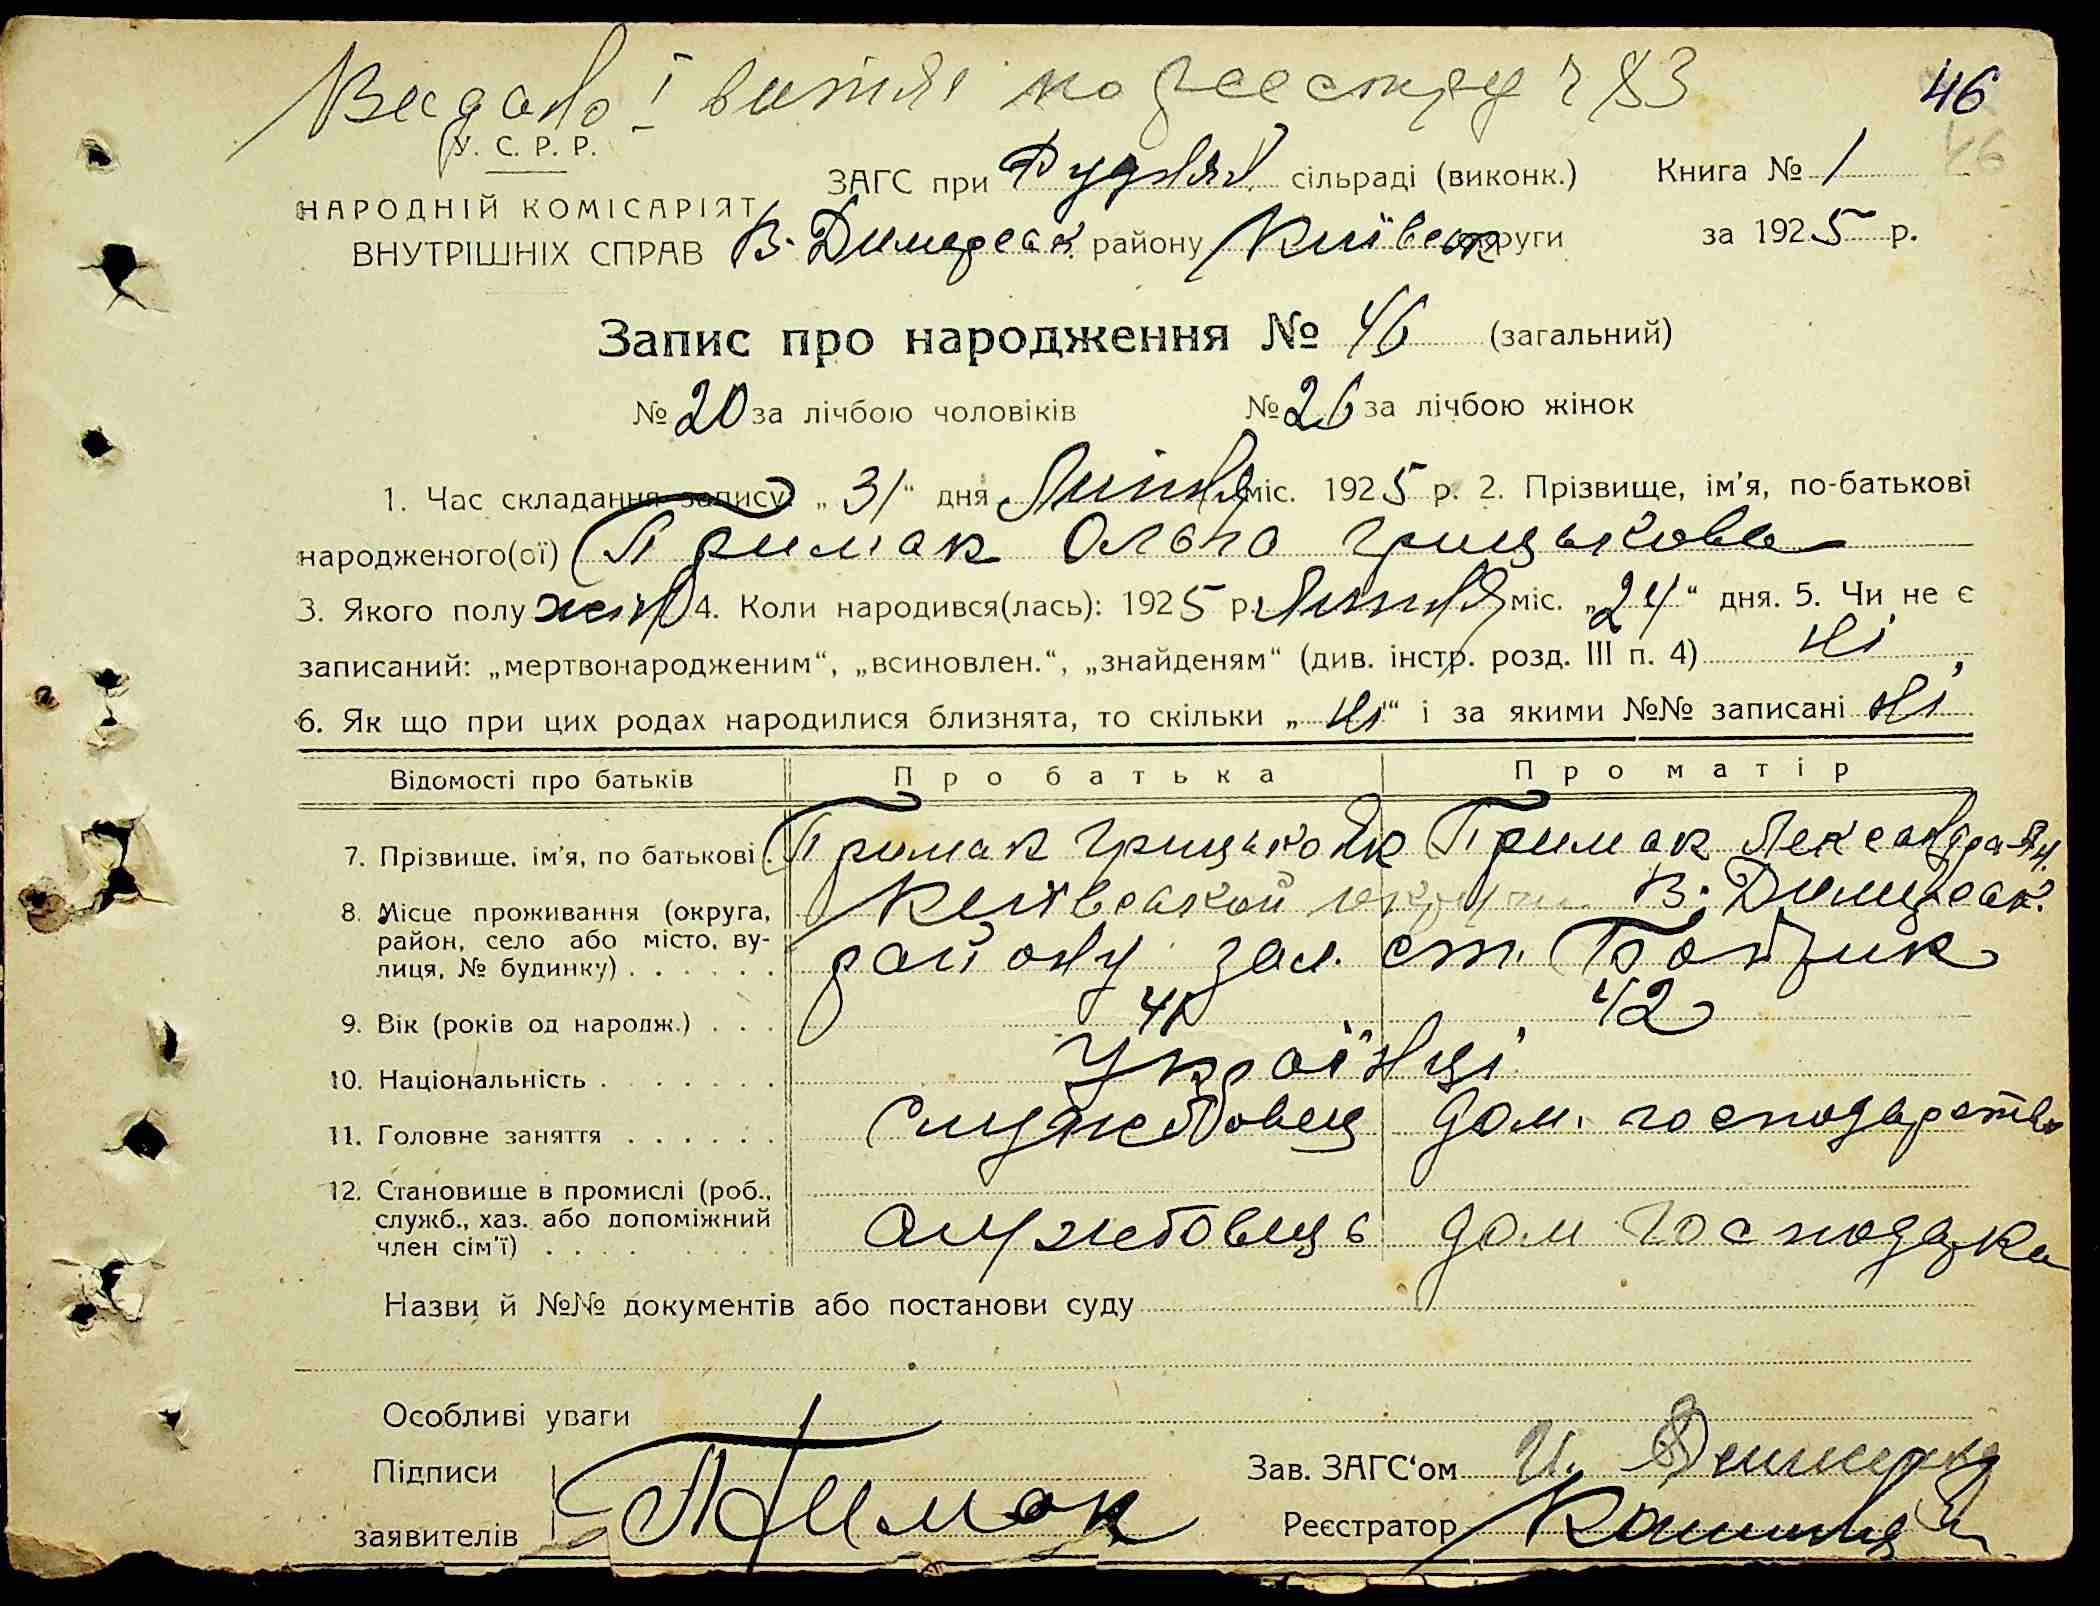 Видано 1 витяг по реєстру ч 83
46
46
У. С. Р. Р.
НАРОДНІЙ КОМІСАРІЯТ
ВНУТРІШНІХ СПРАВ
ЗАГС при Рудням сільраді (виконк.)
Книга № 1
В. Димерськ. району Київськ округи
за 1925 р.
Запис про народження № 46 (загальний)
№ 20 за лічбою чоловіків № 26 за лічбою жінок
1. Час складання запису „31“ дня Липня міс. 1925 р. 2. Прізвище, ім'я, по-батькові
народженого(ої) Примак Ольга Грицькова
3. Якого полу жін 4. Коли народився(лась): 1925 р. Липня міс. „24“ дня. 5. Чи не є
записаний: „мертвонародженим“, „всиновлен.“, „знайденям“ (див. інстр. розд. III п. 4) ні
6. Як що при цих родах народилися близнята, то скільки „ні“ і за якими №№ записані ні
Відомості про батьків Про батька Про матір
7. Прізвище, ім'я, по батькові . Примак Грицько Примак Лександра
8. Місце проживання (округа,
район, село або місто, ву-
лиця, № будинку) . . . . . .
Київської округи В. Димерськ.
району зал. ст. Бобрик
9. Вік (років од народж.) . . . 41 42
10. Національність . . . . . . . Українці
11. Головне заняття . . . . . . Службовець дом. господарство
12. Становище в промислі (роб.,
служб., хаз. або допоміжний
член сім'ї) . . . . . . . .
службовець дом господарка
Назви й №№ документів або постанови суду
Особливі уваги
Підписи
заявителів
Примак
Зав. ЗАГС'ом И.
Реєстратор